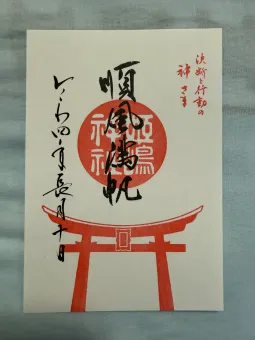 決断と行動の
神さま
順風満帆
姫嶋
神社
令和四年長月十日